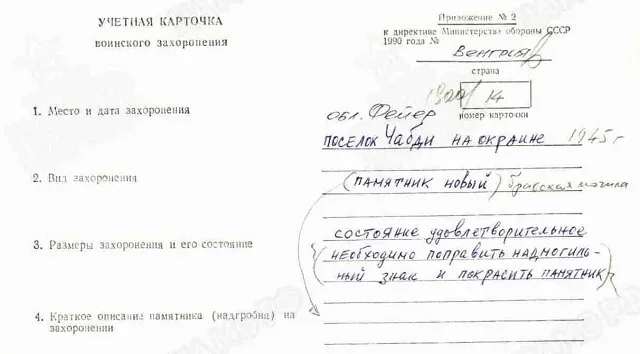 УЧЕТНАЯ КАРТОЧКА
воинского захоронения
Приложение № 2
к директиве Министерства обороны СССР
1990 года №
Венгрия
страна
1900/14
номер карточки
1. Место и дата захоронения
обл. Фейер
поселок Чабди на окраине 1945 г
2. Вид захоронения
(памятник новый) братская могила
3. Размеры захоронения и его состояние
состояние удовлетворительное
(необходимо поправить надмогиль-
ный знак и покрасить памятник)
4. Краткое описание памятника (надгробия) на
захоронении